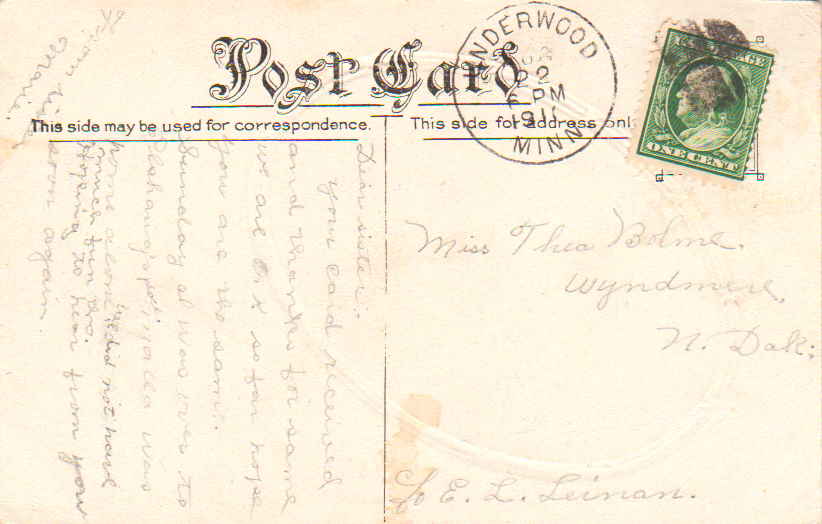 Post Card
This side may be used for correspondence.
This side for address only.
UNDERWOOD
22
6 PM
1911
MINN.
U.S. POSTAGE
ONE CENT
Dear sister:
your card received
and thanks for same
we are O.K. so far hope
you are the same.
Sunday I was over to
was
home alone we did not have
much fun tho.
Hoping to hear from you
soon again.
from
Miss Thea Bolme.
Wyndmere,
N. Dak.
c/o E. L. Leinan.